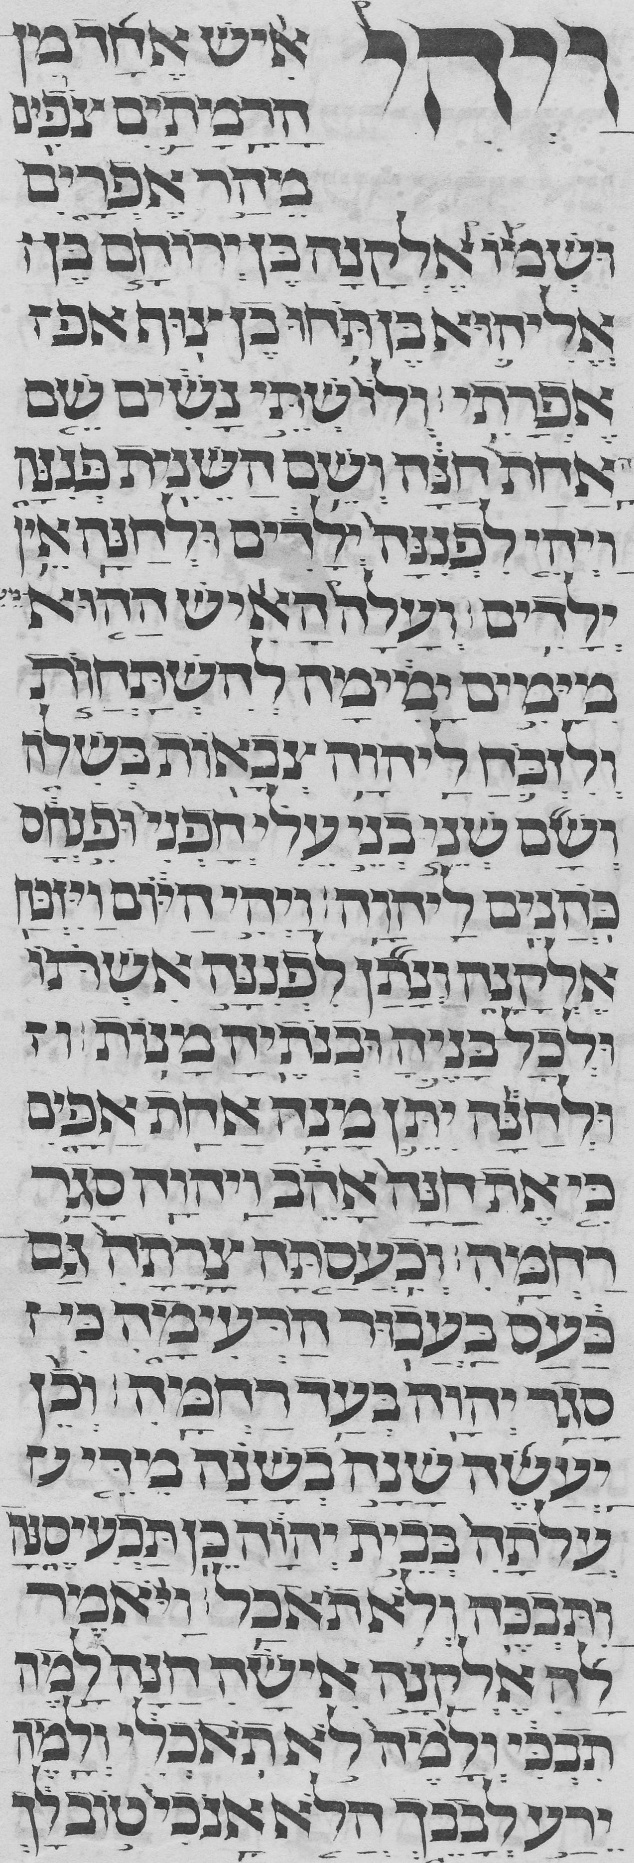 ויהי איש אחד מן
הרמתים צפים
מהר אפרים
ושמו אלקנה בן ירוחם בן
אליהוא בן תחו בן צוף אפ
אפרתי ולו שתי נשים שם
אחת חנה ושם השנית פננה
ויהי לפננה ילדים ולחנה אין
ילדים ועלה האיש ההוא
מימים ימימה להשתחות
ולזבח ליהוה צבאות בשלה
ושם שני בני עלי חפני ופנחס
כהנים ליהוה ויהי היום ויזבח
אלקנה ונתן לפננה אשתו
ולכל בניה ובנתיה מנות ו
ולחנה יתן מנה אחת אפים
כי את חנה אהב ויהוה סגר
רחמה וכעסתה צרתה גם
כעס בעבור הרעימה כי
סגר יהוה בעד רחמה וכן
יעשה שנה בשנה מדי ע
עלתה בבית יהוה כן תכעיסנה
ותבכה ולא תאכל ויאמר
לה אלקנה אישה חנה למה
תבכי ולמה לא תאכלי ולמה
ירע לבבך הלא אנכי טוב לך